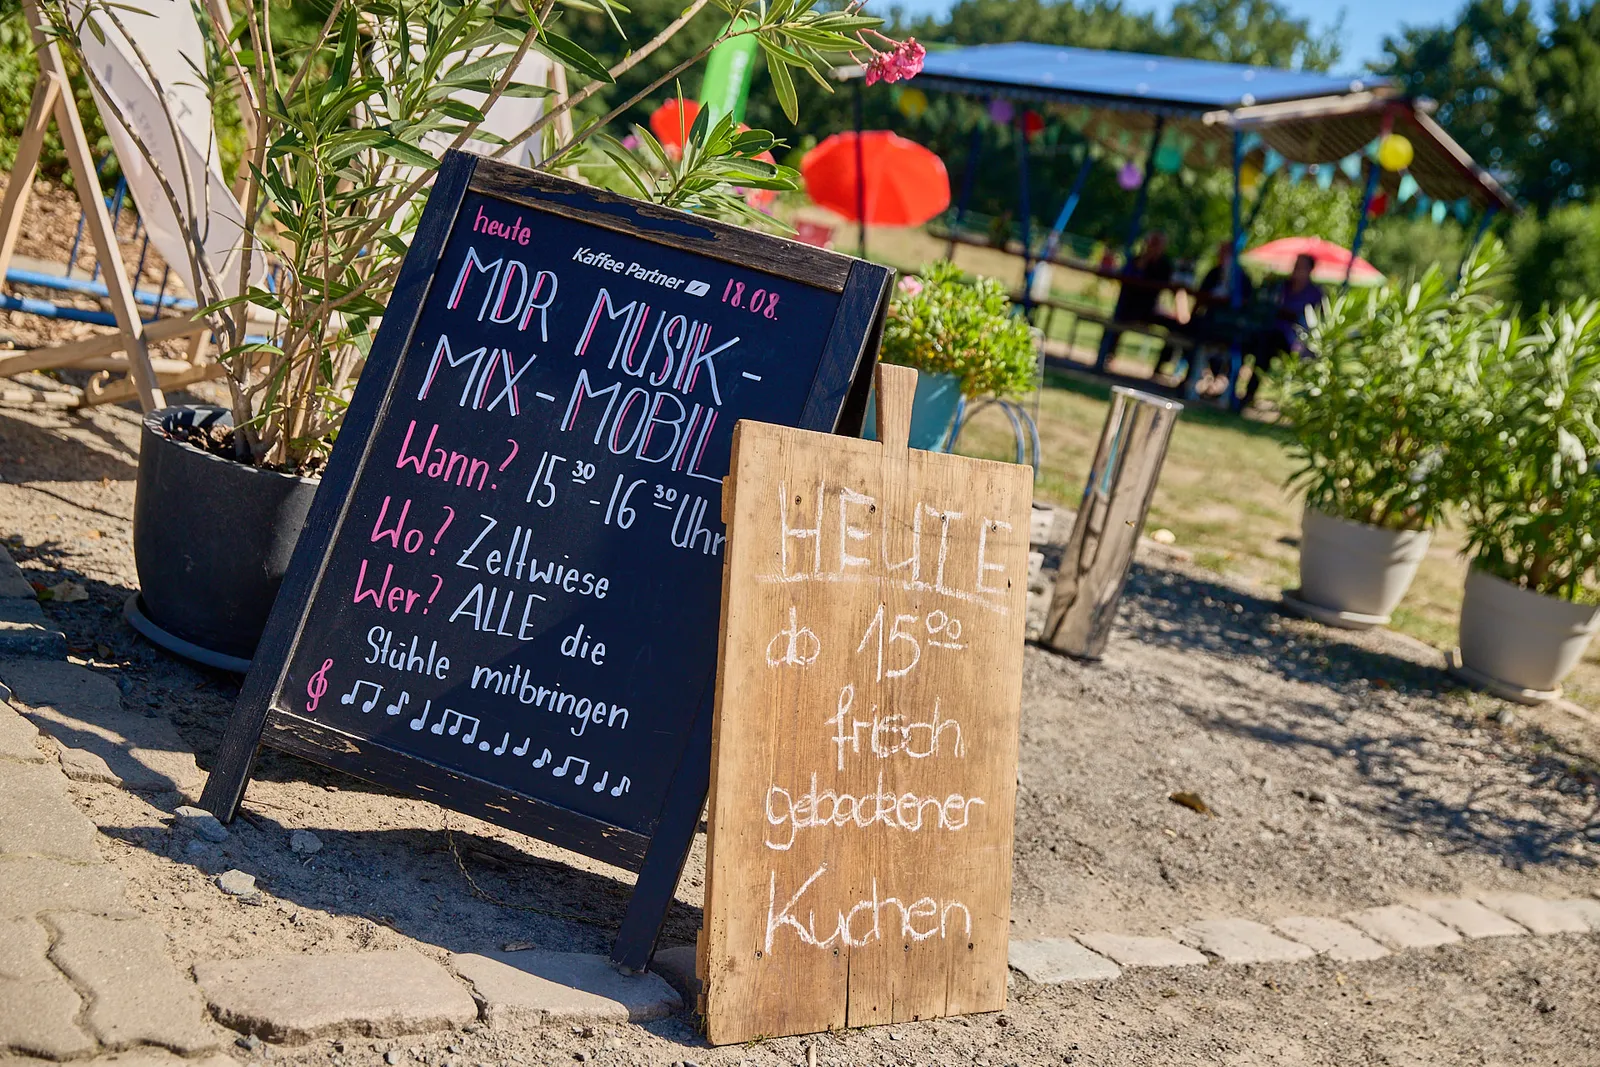 heute
Kaffee Partner 18.08.
MDR MUSIK-
MIX-MOBIL
Wann? 15³⁰-16³⁰ Uhr
Wo? Zeltwiese
Wer? ALLE die
Stühle mitbringen
HEUTE
ab 15⁰⁰
frisch
gebackener
Kuchen